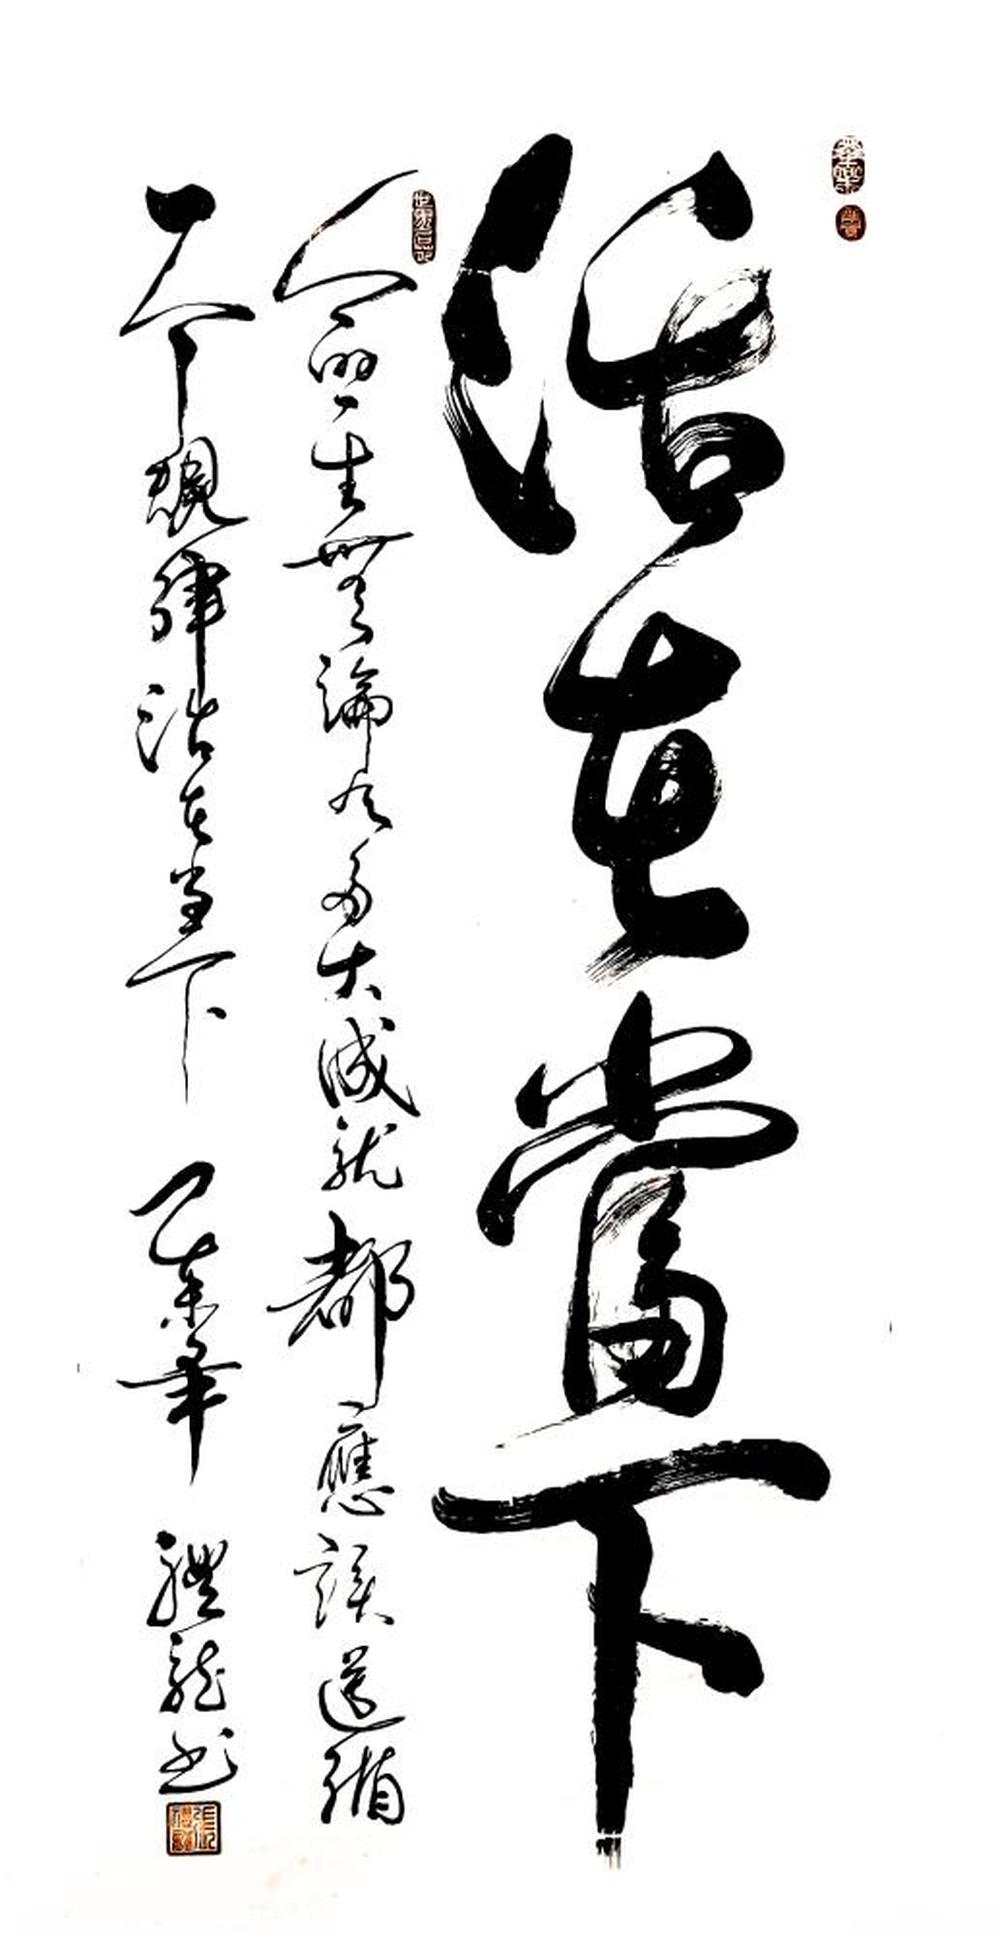 活在當下
人的一生無論有多大成就都應該遵循
一个規律活在当下 乙未年 禮龍书